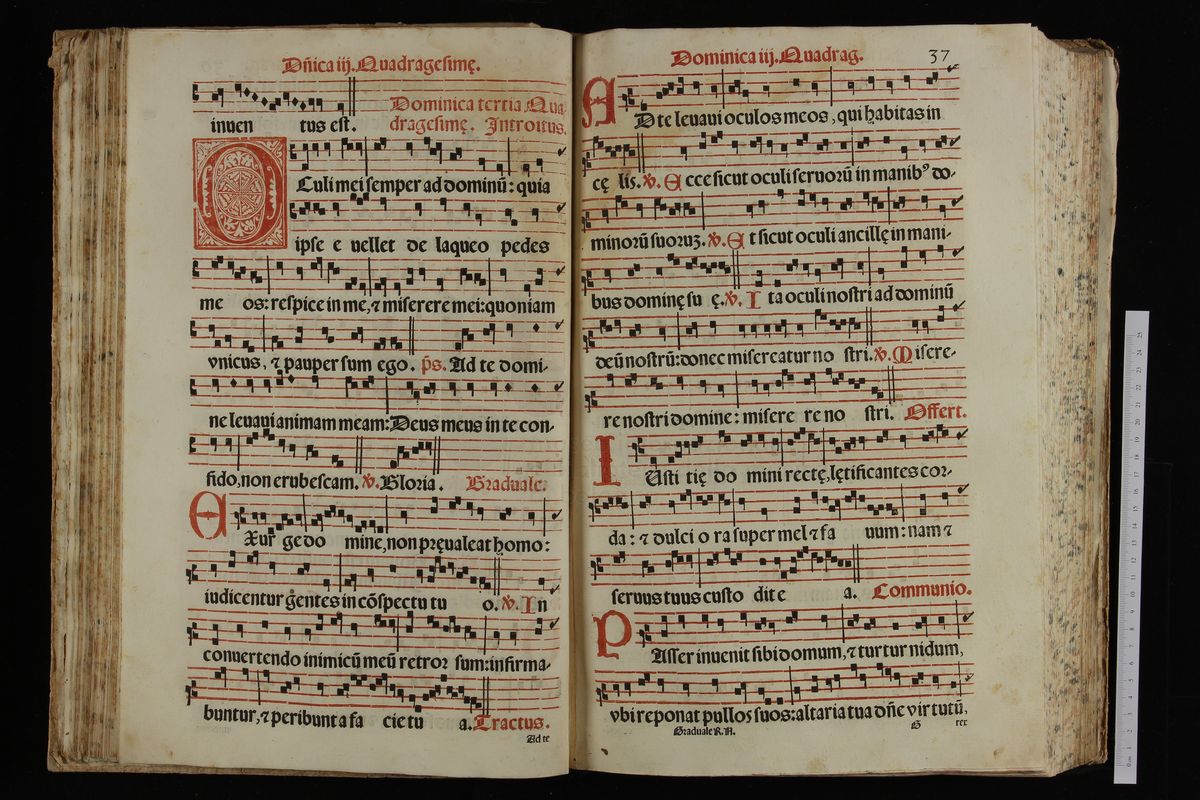 Dñica iij. Quadragesimę.
inuen tus est. Dominica tertia Qua
dragesimę. Introitus.
OCuli mei semper ad dominū: quia
ipse e uellet de laqueo pedes
me os: respice in me, ⁊ miserere mei: quoniam
vnicus, ⁊ pauper sum ego. p̄s. Ad te domi-
ne leuaui animam meam: Deus meus in te con-
fido, non erubescam. ℣. Gloria. Graduale.
EXur ge do mine, non pręualeat homo:
iudicentur gentes in cōspectu tu o. ℣. In
conuertendo inimicū meū retror sum: infirma-
buntur, ⁊ peribunt a fa cie tu a. Tractus.
Ad te
Dominica iij. Quadrag. 37
AD te leuaui oculos meos, qui habitas in
cę lis. ℣. Ecce sicut oculi seruorū in manibꝰ do-
minorū suoruꝫ. ℣. Et sicut oculi ancillę in mani-
bus dominę su ę. ℣. Ita oculi nostri ad dominū
deū nostrū: donec misereatur no stri. ℣. Misere-
re nostri domine: misere re no stri. Offert.
IUsti tię do mini rectę, lętificantes cor-
da: ⁊ dulci o ra super mel ⁊ fa uum: nam ⁊
seruus tuus custo dit e a. Communio.
PAsser inuenit sibi domum, ⁊ turtur nidum,
vbi reponat pullos suos: altaria tua dñe vir tutū,
Graduale R. A. G rex